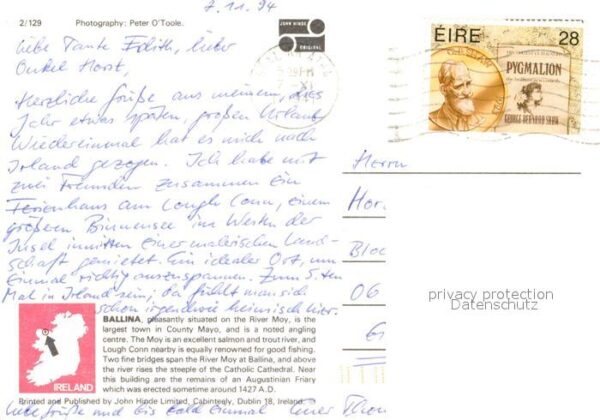 7.11.94
2/129 Photography: Peter O'Toole.
Liebe Tante Edith, lieber
Onkel Horst,
Herzliche Grüße aus meinem, dies
Jahr etwas späten, großen Urlaub
Wiedereinmal hat es mich nach
Irland gezogen. Ich habe mit
zwei Freunden zusammen ein
Ferienhaus am Lough Conn, einem
größeren Binnensee im Westen der
Insel inmitten einer malerischen Land-
schaft gemietet. Ein idealer Ort, um
Einmal richtig auszuspannen. Zum 5.ten
Mal in Irland sein; da fühlt man sich
schon irgendwie heimisch hier.
ÉIRE 28
G.B. SHAW
PYGMALION
GEORGE BERNARD SHAW
Herrn
Hor
Bloc
06
privacy protection
Datenschutz
IRELAND
BALLINA, pleasantly situated on the River Moy, is the
largest town in County Mayo, and is a noted angling
centre. The Moy is an excellent salmon and trout river, and
Lough Conn nearby is equally renowned for good fishing.
Two fine bridges span the River Moy at Ballina, and above
the river rises the steeple of the Catholic Cathedral. Near
this building are the remains of an Augustinian Friary
which was erected sometime around 1427 A.D.
Printed and Published by John Hinde Limited, Cabinteely, Dublin 18, Ireland.
Liebe Grüße und bis bald einmal Euer Thom